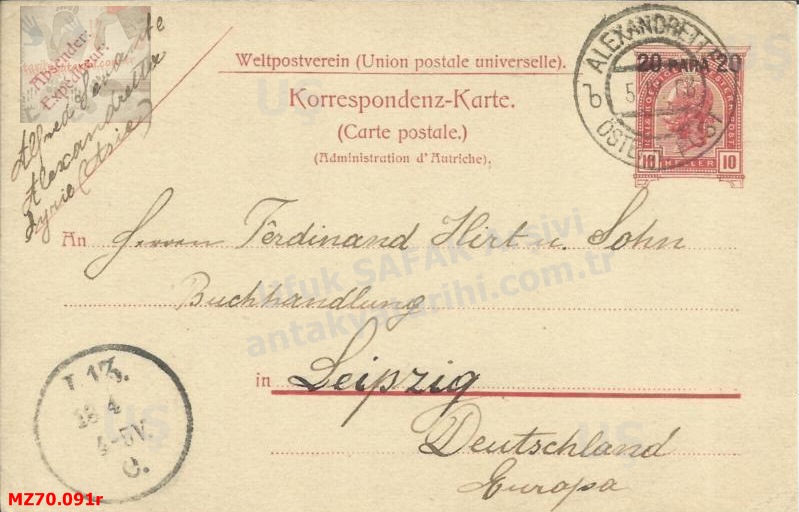 Absender:
Expéditeur:
Alexandrette
Syrie (Asie)
Weltpostverein (Union postale universelle).
Korrespondenz-Karte.
(Carte postale.)
(Administration d'Autriche).
ALEXANDRETTE
20 PARA 20
b
5
ÖSTE POST
10 HELLER 10
An Herren Ferdinand Hirt u. Sohn
Buchhandlung
in Leipzig
Deutschland
Europa
L 13.
18 4
4-5V.
Ufuk ŞAFAK Arşivi
antakyatarihi.com.tr
UŞ
UŞ
UŞ
UŞ
MZ70.091r